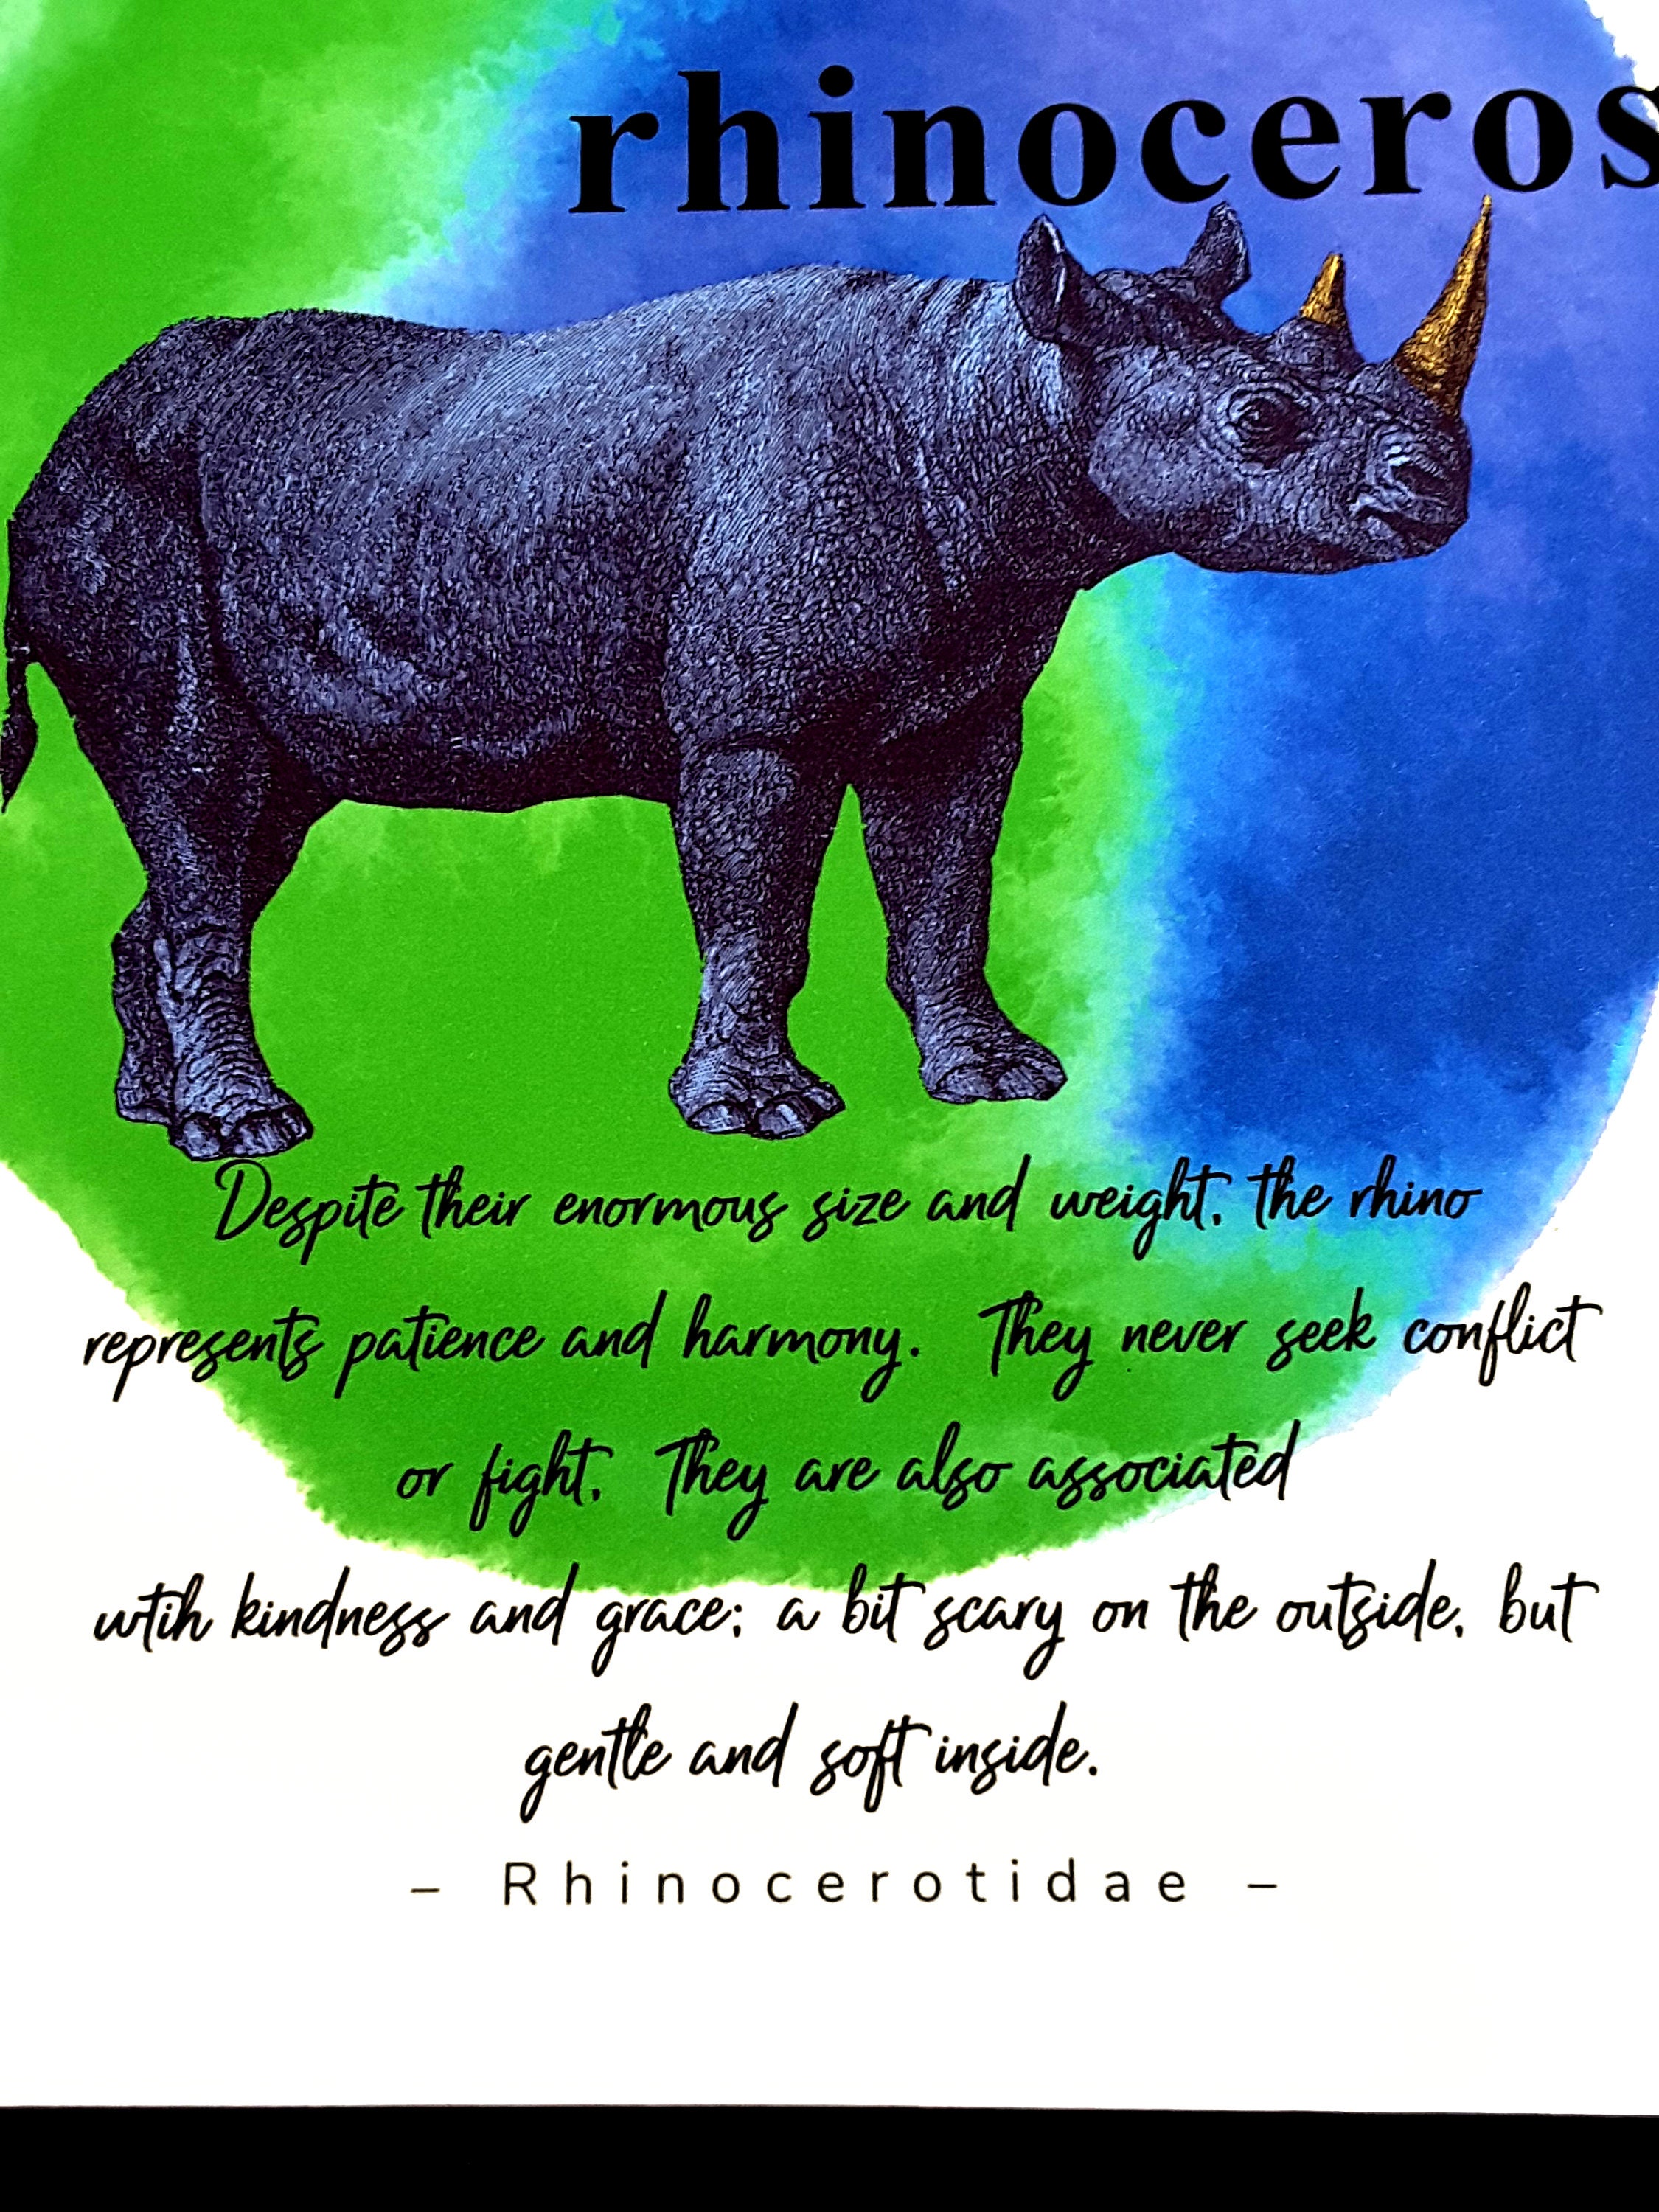 rhinoceros
Despite their enormous size and weight, the rhino
represents patience and harmony. They never seek conflict
or fight, They are also associated
wtih kindness and grace; a bit scary on the outside, but
gentle and soft inside.
– Rhinocerotidae –